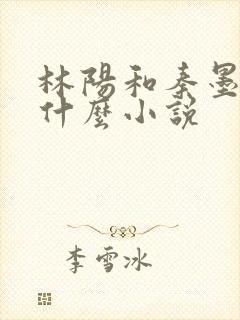 林陽和秦墨
什麼小説
李雪冰